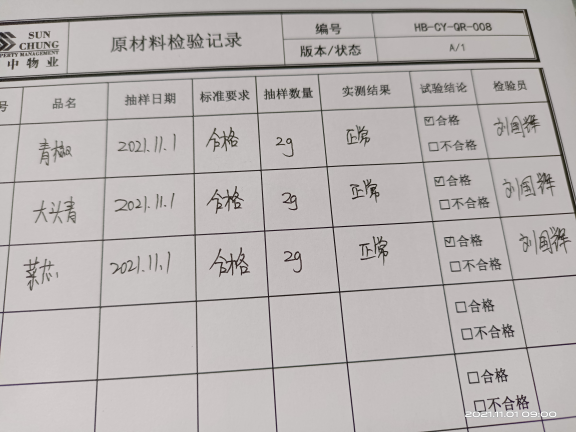 SUN
CHUNG
PERTY MANAGEMENT
中物业
原材料检验记录
编号 HB-CY-QR-008
版本/状态 A/1
号 品名 抽样日期 标准要求 抽样数量 实测结果 试验结论 检验员
青椒 2021.11.1 合格 2g 正常 ☑合格 刘国辉
□不合格
大头青 2021.11.1 合格 2g 正常 ☑合格 刘国辉
□不合格
菜芯 2021.11.1 合格 2g 正常 ☑合格 刘国辉
□不合格
□合格
□不合格
□合格
□不合格
2021.11.01 09:00